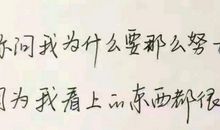 你问我为什么要那么努
因为我看上的东西都很